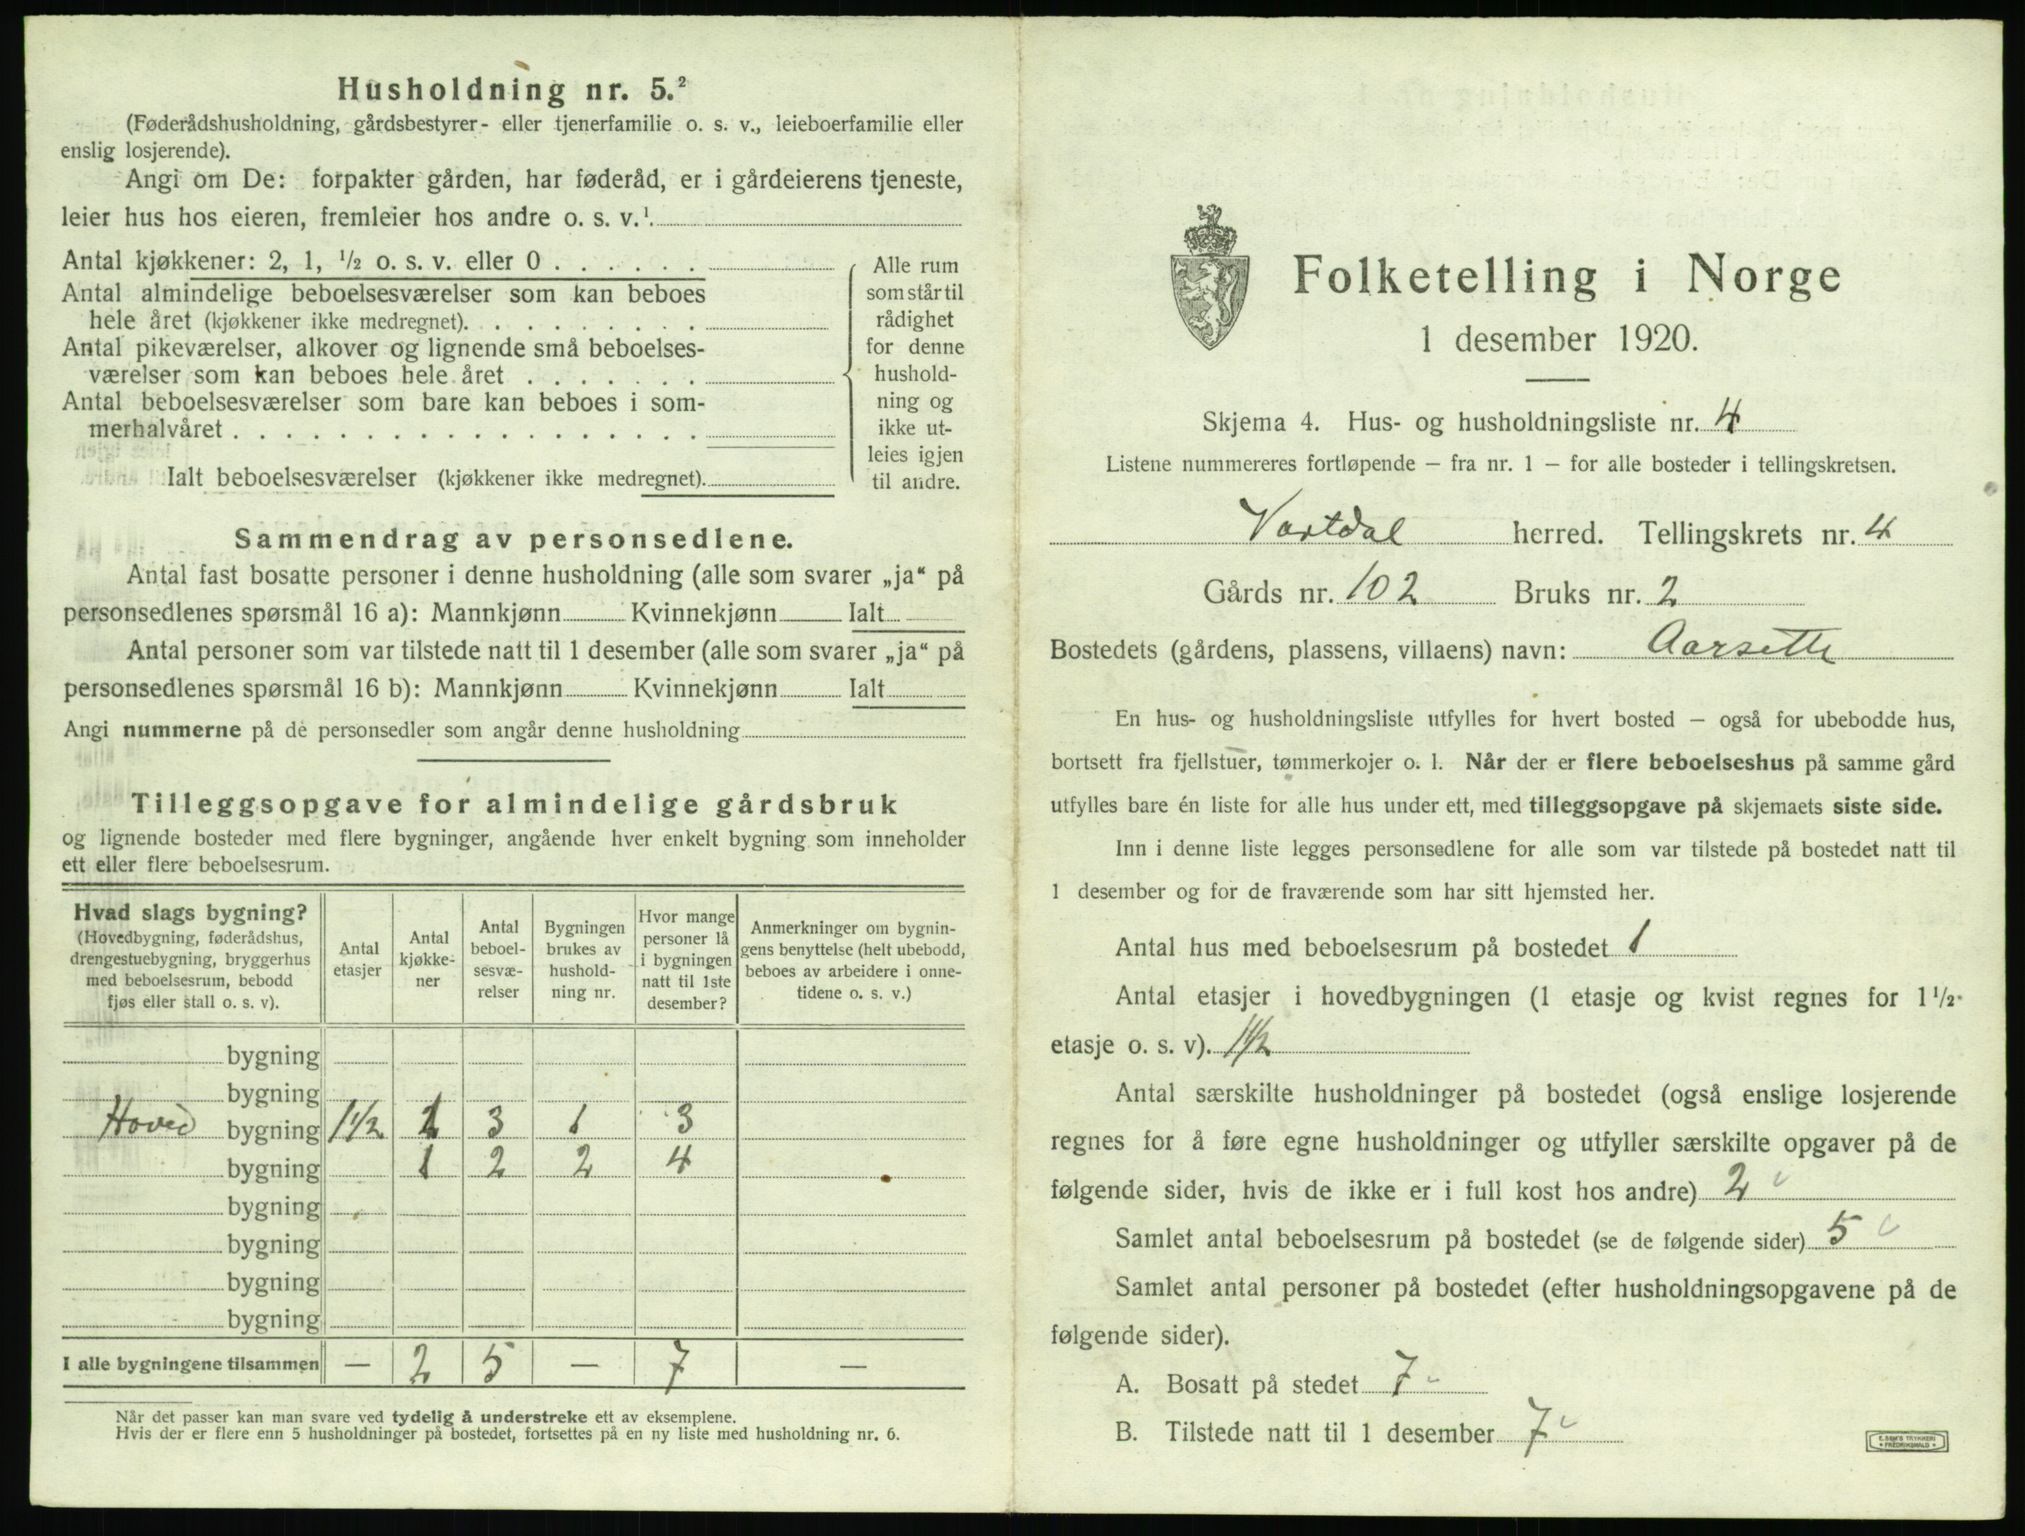 Husholdning nr. 5.²
(Føderådshusholdning, gårdsbestyrer- eller tjenerfamilie o. s. v., leieboerfamilie eller
enslig losjerende).
Angi om De: forpakter gården, har føderåd, er i gårdeierens tjeneste,
leier hus hos eieren, fremleier hos andre o. s. v.¹
Antal kjøkkener: 2, 1, ½ o. s. v. eller 0
Antal almindelige beboelsesværelser som kan beboes
hele året (kjøkkener ikke medregnet).
Antal pikeværelser, alkover og lignende små beboelses-
værelser som kan beboes hele året
Antal beboelsesværelser som bare kan beboes i som-
merhalvåret
Ialt beboelsesværelser (kjøkkener ikke medregnet).
Alle rum
som står til
rådighet
for denne
hushold-
ning og
ikke ut-
leies igjen
til andre.
Sammendrag av personsedlene.
Antal fast bosatte personer i denne husholdning (alle som svarer „ja“ på
personsedlenes spørsmål 16 a): Mannkjønn Kvinnekjønn Ialt
Antal personer som var tilstede natt til 1 desember (alle som svarer „ja“ på
personsedlenes spørsmål 16 b): Mannkjønn Kvinnekjønn Ialt
Angi nummerne på de personsedler som angår denne husholdning
Tilleggsopgave for almindelige gårdsbruk
og lignende bosteder med flere bygninger, angående hver enkelt bygning som inneholder
ett eller flere beboelsesrum.
Hvad slags bygning?
(Hovedbygning, føderådshus,
drengestuebygning, bryggerhus
med beboelsesrum, bebodd
fjøs eller stall o. s. v).
Antal
etasjer
Antal
kjøkke-
ner
Antal
beboel-
sesvæ-
relser
Bygningen
brukes av
hushold-
ning nr.
Hvor mange
personer lå
i bygningen
natt til 1ste
desember?
Anmerkninger om bygnin-
gens benyttelse (helt ubebodd,
beboes av arbeidere i onne-
tidene o. s. v.)
bygning
bygning
Hoved bygning 1½ 1 3 1 3
bygning 1 2 2 4
bygning
bygning
bygning
bygning
I alle bygningene tilsammen — 2 5 — 7 —
Når det passer kan man svare ved tydelig å understreke ett av eksemplene.
Hvis der er flere enn 5 husholdninger på bostedet, fortsettes på en ny liste med husholdning nr. 6.
Folketelling i Norge
1 desember 1920.
Skjema 4. Hus- og husholdningsliste nr. 4
Listene nummereres fortløpende – fra nr. 1 – for alle bosteder i tellingskretsen.
Vartdal herred. Tellingskrets nr. 4
Gårds nr. 102 Bruks nr. 2
Bostedets (gårdens, plassens, villaens) navn: Aarseth
En hus- og husholdningsliste utfylles for hvert bosted – også for ubebodde hus,
bortsett fra fjellstuer, tømmerkojer o. l. Når der er flere beboelseshus på samme gård
utfylles bare én liste for alle hus under ett, med tilleggsopgave på skjemaets siste side.
Inn i denne liste legges personsedlene for alle som var tilstede på bostedet natt til
1 desember og for de fraværende som har sitt hjemsted her.
Antal hus med beboelsesrum på bostedet 1
Antal etasjer i hovedbygningen (1 etasje og kvist regnes for 1½
etasje o. s. v). 1½
Antal særskilte husholdninger på bostedet (også enslige losjerende
regnes for å føre egne husholdninger og utfyller særskilte opgaver på de
følgende sider, hvis de ikke er i full kost hos andre) 2
Samlet antal beboelsesrum på bostedet (se de følgende sider) 5
Samlet antal personer på bostedet (efter husholdningsopgavene på de
følgende sider).
A. Bosatt på stedet 7
B. Tilstede natt til 1 desember 7
E. SEM'S TRYKKERI
FREDRIKSHALD